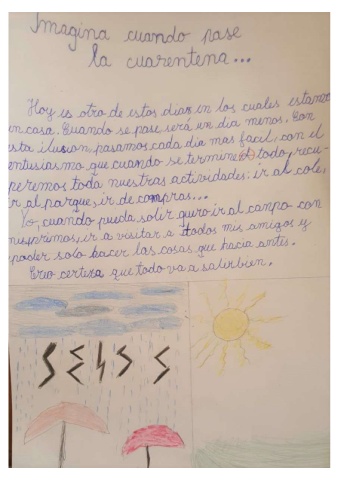 Imagina cuando pase
la cuarentena...
Hoy es otro de estos dias en los cuales estamos
en casa. Cuando se pase será un dia menos. Con
esta ilusion, pasamos cada dia mas facil, con el
entusiasmo que cuando se termine todo, recu-
peremos toda nuestras actividades: ir al cole,
ir al parque, ir de compras...
Yo, cuando pueda salir quiro ir al campo con
mis primos, ir a visetar a todos mis amigos y
poder solo hacer las cosas que hacia antes.
Creo certeza que todo va a salir bien.